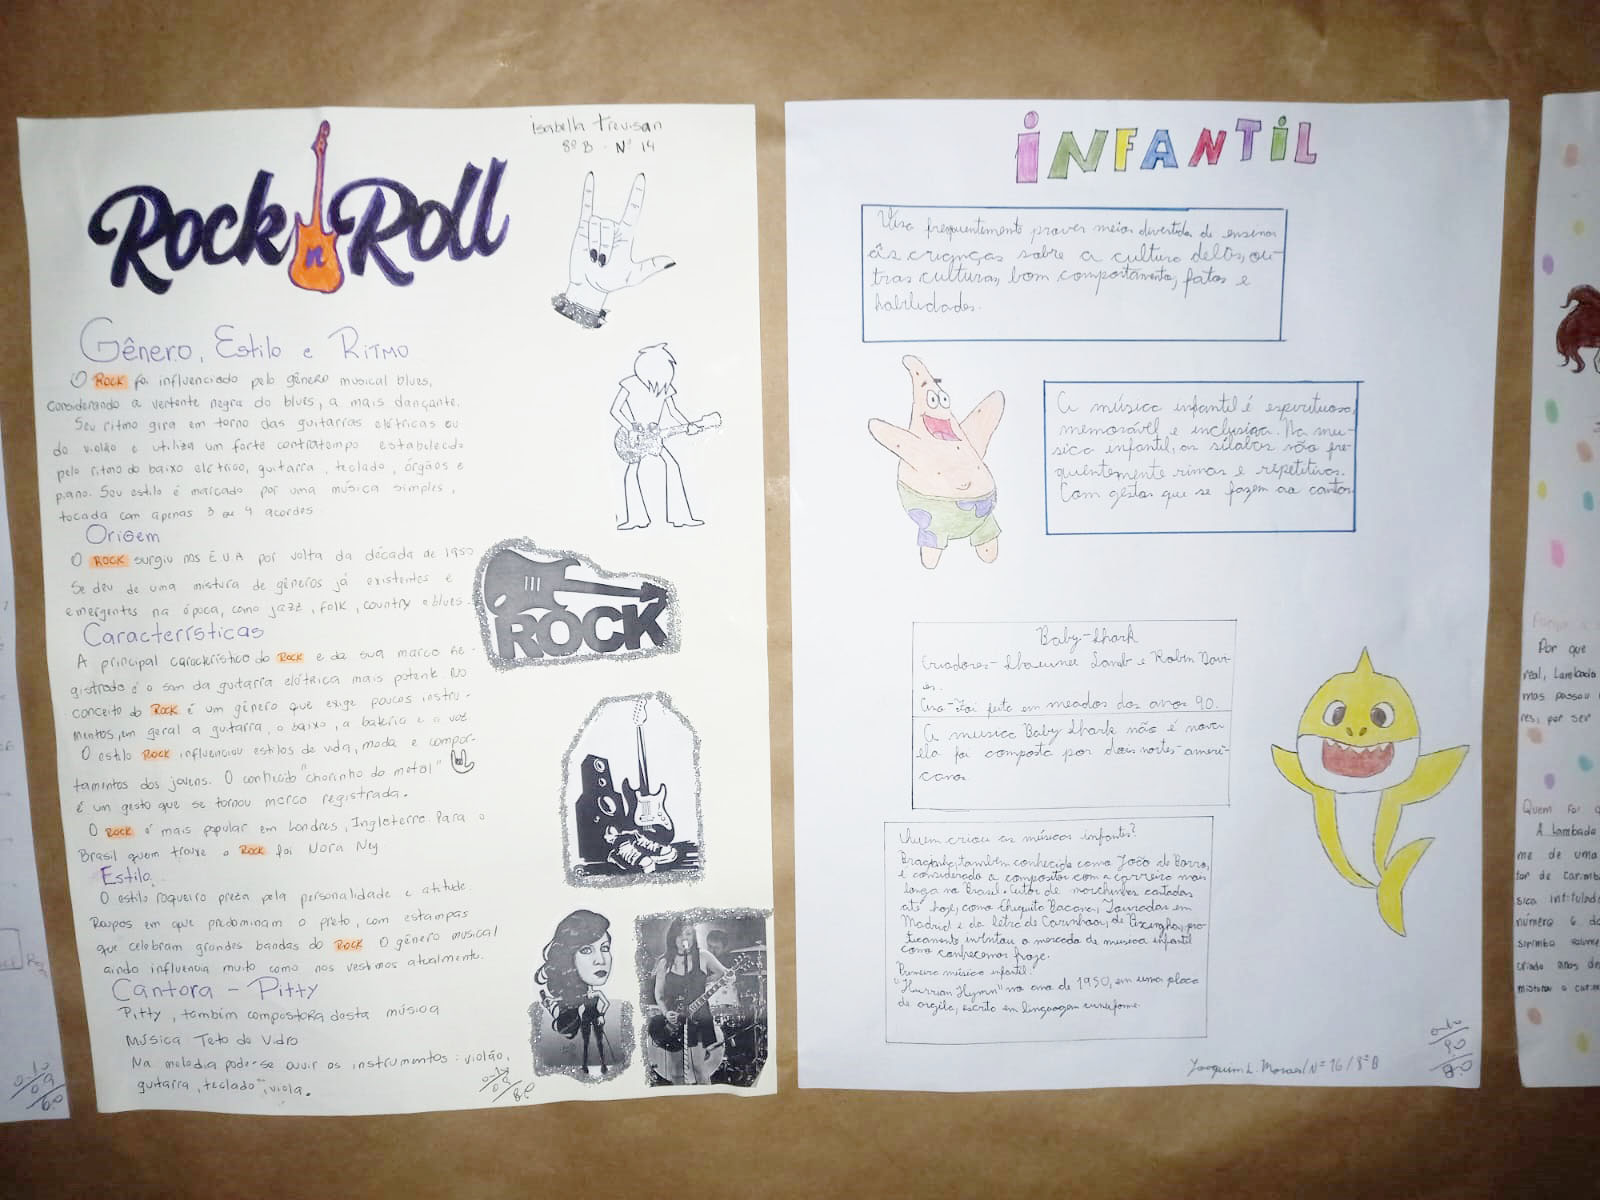 Rock n Roll
isabella trevisan
8º B - Nº 14
Gênero, Estilo e Ritmo
O Rock foi influenciado pelo gênero musical blues,
considerando a vertente negra do blues, a mais dançante.
Seu ritmo gira em torno das guitarras elétricas ou
do violão e utiliza um forte contratempo estabelecido
pelo ritmo do baixo elétrico, guitarra, teclado, órgãos e
piano. Seu estilo é marcado por uma música simples,
tocada com apenas 3 ou 4 acordes.
Origem
O Rock surgiu nos E.U.A por volta da década de 1950
Se deu de uma mistura de gêneros já existentes e
emergentes na época, como jazz, folk, country e blues.
Características
A principal característico do Rock e da sua marca re-
gistrada é o som da guitarra elétrica mais potente. No
conceito do Rock é um gênero que exige poucos instru-
mentos, em geral a guitarra, o baixo, a bateria e a voz.
O estilo Rock influenciou estilos de vida, moda e compor-
tamentos dos jovens. O conhecido "chorinho do metal"
é um gesto que se tornou marca registrada.
O Rock é mais popular em Londres, Inglaterra. Para o
Brasil quem trouxe o Rock foi Nora Ney
Estilo
O estilo roqueiro preza pela personalidade e atitude.
Roupas em que predominam o preto, com estampas
que celebram grandes bandas do Rock O gênero musical
ainda influencia muito como nos vestimos atualmente.
Cantora - Pitty
Pitty, também compostora desta música
Música Teto de Vidro
Na melodia pode-se ouvir os instrumentos: violão,
guitarra, teclado, viola.
ROCK
INFANTIL
Visa frequentemente prover meios divertidos de ensinar
às crianças sobre a cultura delas, ou-
tras culturas, bom comportamento, fatos e
habilidades.
A música infantil é espirituosa,
memorável e inclusiva. Na mú-
sica infantil, as sílabas são fre-
quentemente rimas e repetitivas.
Com gestos que se fazem ao cantar
Baby-Shark
Criadores- Shawnee Lamb e Robin Davi-
es.
Ano- Foi feito em meados dos anos 90.
A música Baby Shark não é nova
ela foi composta por dois nortes-ameri-
canos.
Quem criou as músicas infantis?
Braguinha, também conhecido como João de Barro,
é considerado o compositor com a carreira mais
longa no Brasil. Autor de marchinhas cantadas
até hoje, como Chiquita Bacana, Touradas em
Madrid e da letra de Carinhoso, de Pixinguinha, pra
ticamente inventou o mercado de música infantil
como conhecemos hoje.
Primeira música infantil:
"Hurrian Hymn" no ano de 1950, em uma placa
de argila, escrito em linguagem cuneiforme.
Joaquim L. Moraes / Nº 16 / 8º B
Por que
real, Lambada
mas passou
res, por ser
Quem foi
A lambada
me de uma
tor de carimb
sica intitulad
número 6 do
sirimbó volume
criado anos de
misturar o carim